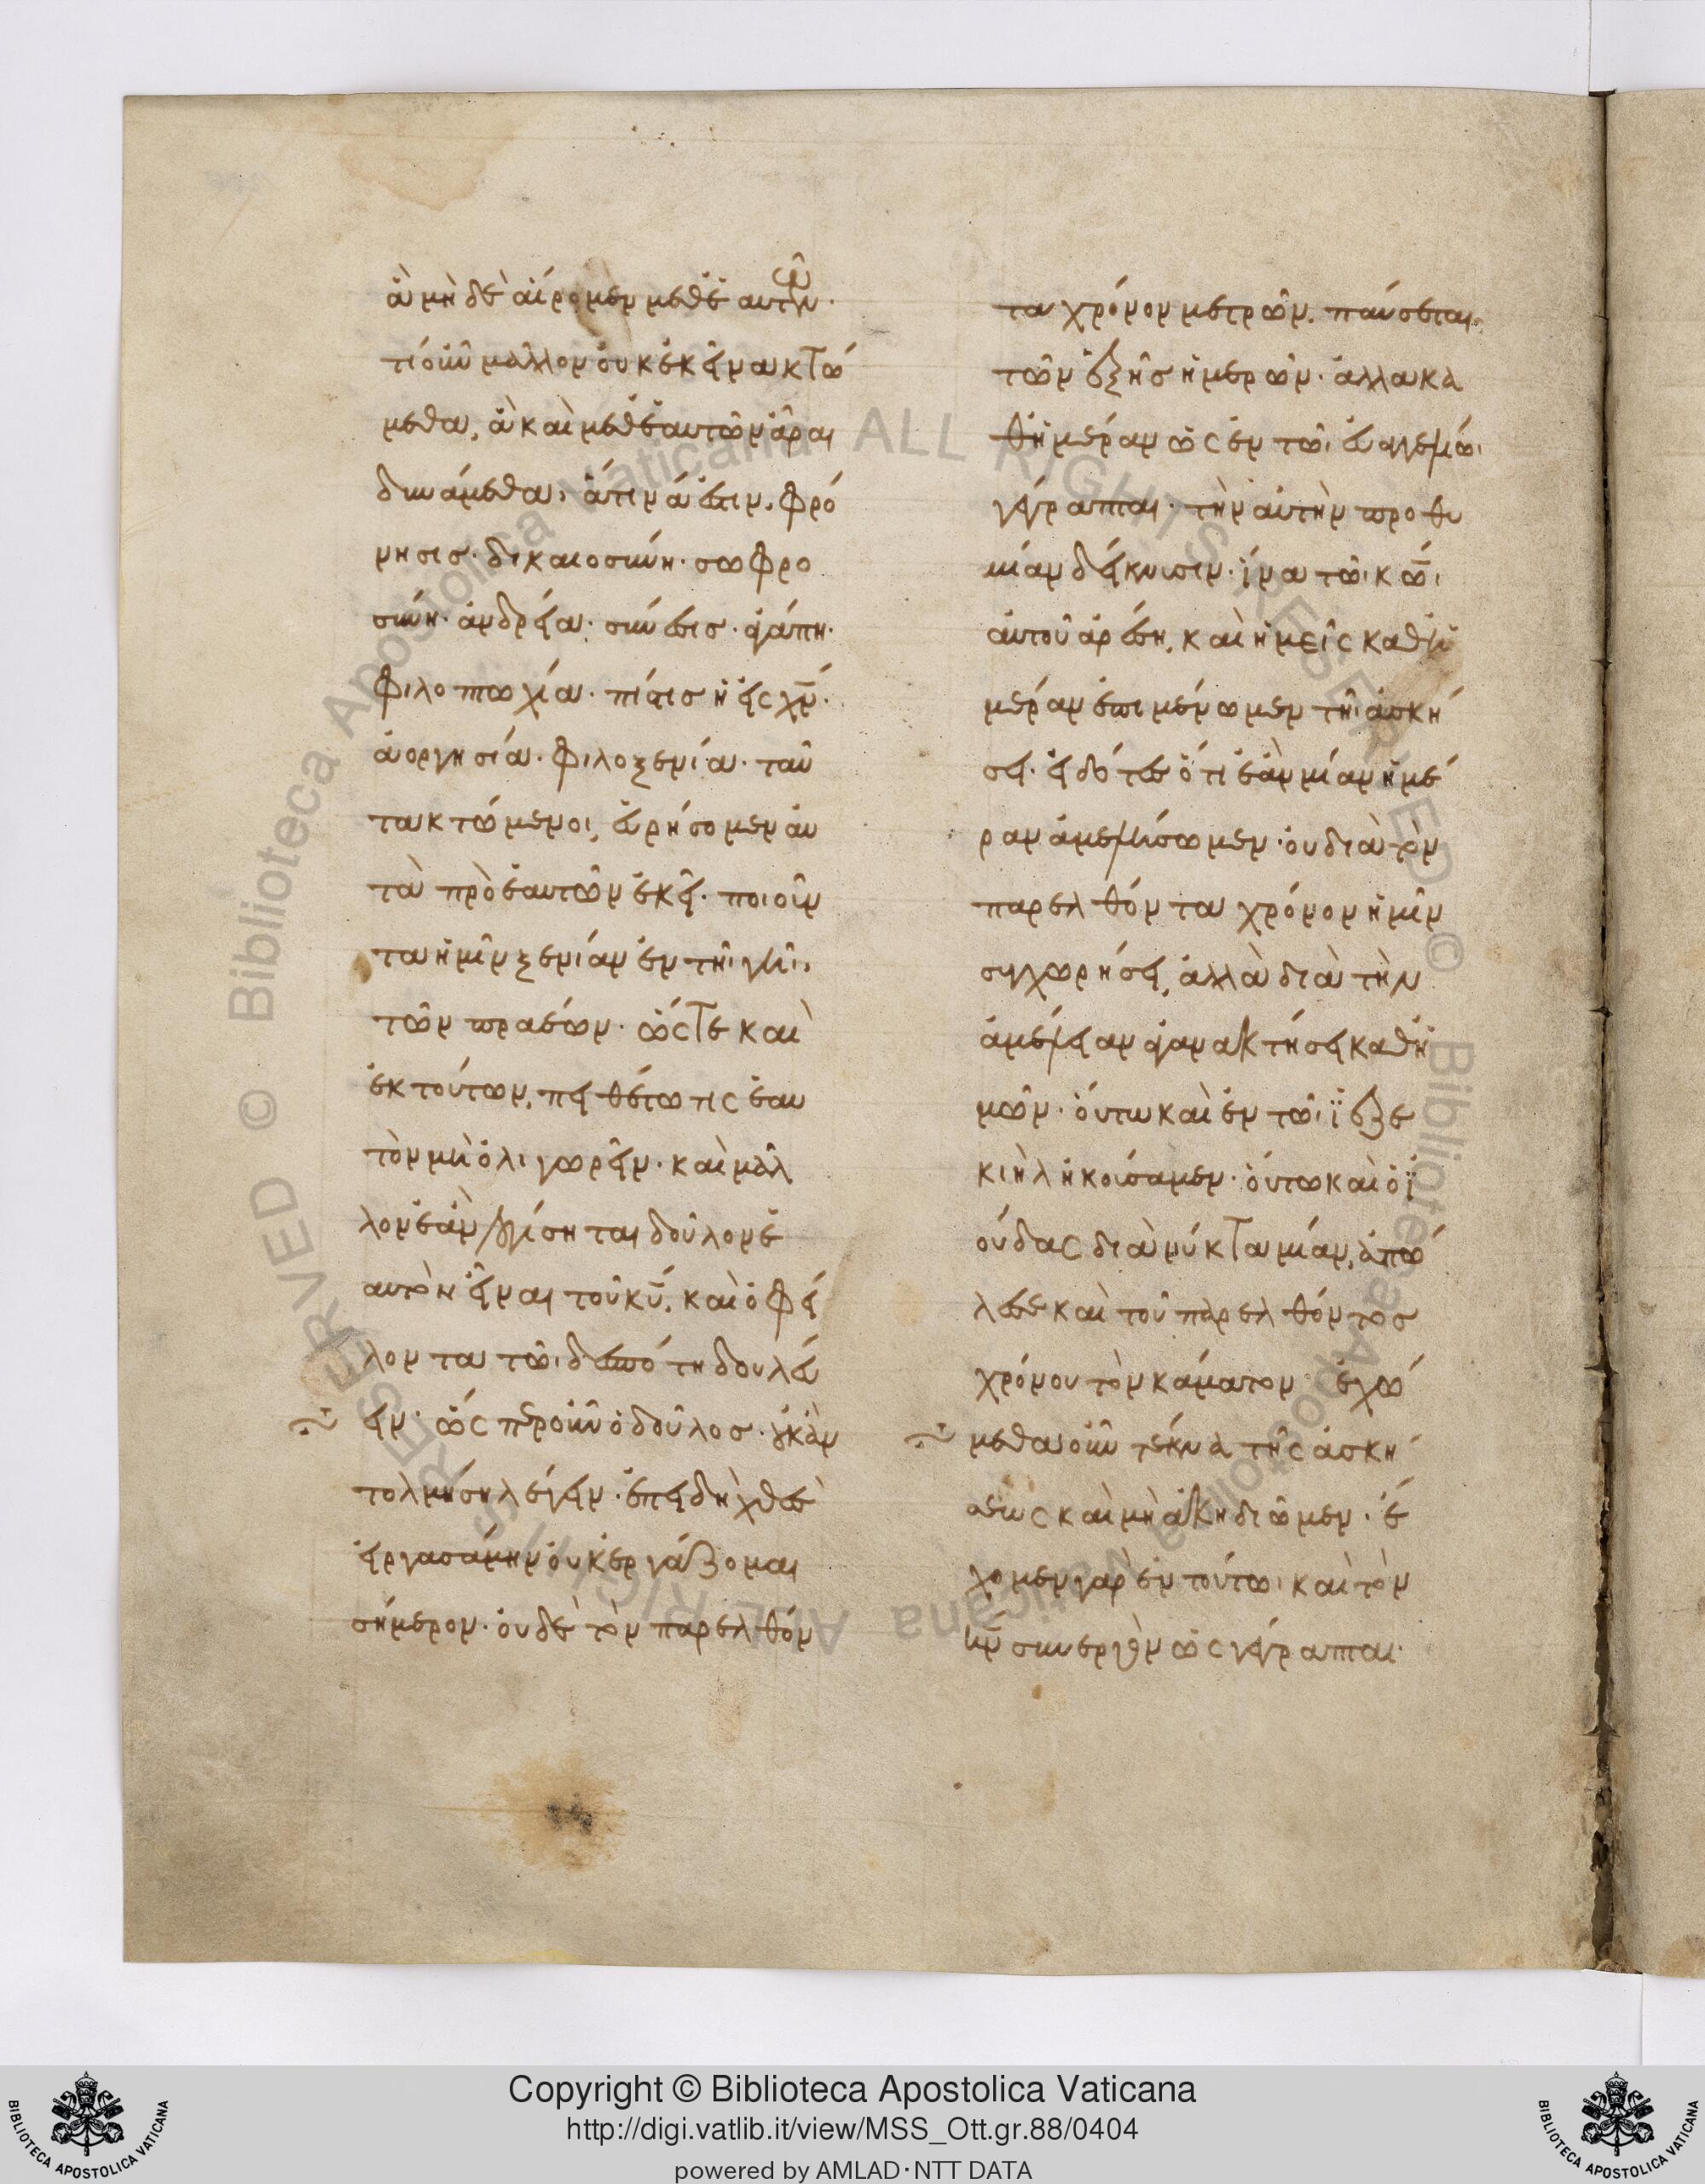 ἃ μὴ δὲ αἴρομεν μεθ ἑαυτῶν·
τί οὖν μᾶλλον οὐκ ἐκεῖνα κτώ
μεθα, ἃ καὶ μεθ ἑαυτῶν ἆραι
δυνάμεθα· ἅτινά ἐστιν, φρό
νησισ· δικαιοσύνη· σωφρο
σύνη· ἀνδρεία· σύνεσισ· ἀγάπη·
φιλοπτωχία· πίστισ ἡ εἰς χν·
ἀοργησία· φιλοξενία· ταῦ
τα κτώμενοι, εὑρήσομεν αὐ
τὰ πρὸ ἑαυτῶν ἐκεῖ· ποιοῦν
τα ἡμῖν ξενίαν ἐν τῆι γῆι,
τῶν πραέων· ὥστε καὶ
ἐκ τούτων, πειθέτω τις ἑαυ
τὸν μὴ ὀλιγωρεῖν· καὶ μᾶλ
λον ἐὰν λογίσηται δοῦλον ἑ
αυτὸν εἶναι τοῦ κυ, καὶ ὀφεί
λοντα τῶι δεσπότη δουλεύ
ειν· ὥς περ οὖν ὁ δοῦλοσ· οὐκ ἂν
τολμήση λέγειν· ἐπειδὴ χθὲς
εἰργασάμην οὐκ ἐργάζομαι
σήμερον· οὐδὲ τὸν παρελθόν
τα χρόνον μετρῶν, παύσεται
τῶν ἑξῆσ ἡμερῶν· ἀλλα κα
θ ἡμέραν ὡς ἐν τῶι εὐαγγελίωι
γέγραπται· τὴν αὐτὴν προθυ
μίαν δείκνυσιν· ἵνα τῶι κωι
αὐτοῦ ἀρέση, καὶ ἡμεῖς καθ ἡ
μέραν ἐπιμένωμεν τῆι ἀσκή
σει· εἰδότες ὅτι ἐὰν μίαν ἡμέ
ραν ἀμελήσωμεν· οὐ διὰ τὸν
παρελθόντα χρόνον ἡμῖν
συγχωρήσει, ἀλλὰ διὰ τὴν
ἀμέλειαν ἀγανακτήσει καθ ἡ
μῶν· οὕτω καὶ ἐν τῶι ϊεζε
κιὴλ ἠκούσαμεν· οὕτω καὶ ὁ ϊ
ούδας διὰ νύκτα μίαν, ἀπώ
λεσε καὶ τοῦ παρελθόντοσ
χρόνου τὸν κάματον ἐχώ
μεθα οὖν τέκνα τῆς ἀσκή
σεως καὶ μὴ ἀκηδιῶμεν· ἔ
χομεν γὰρ ἐν τούτωι καὶ τὸν
κν συνεργὸν ὡς γέγραπται·
Copyright © Biblioteca Apostolica Vaticana
http://digi.vatlib.it/view/MSS_Ott.gr.88/0404
powered by AMLAD·NTT DATA